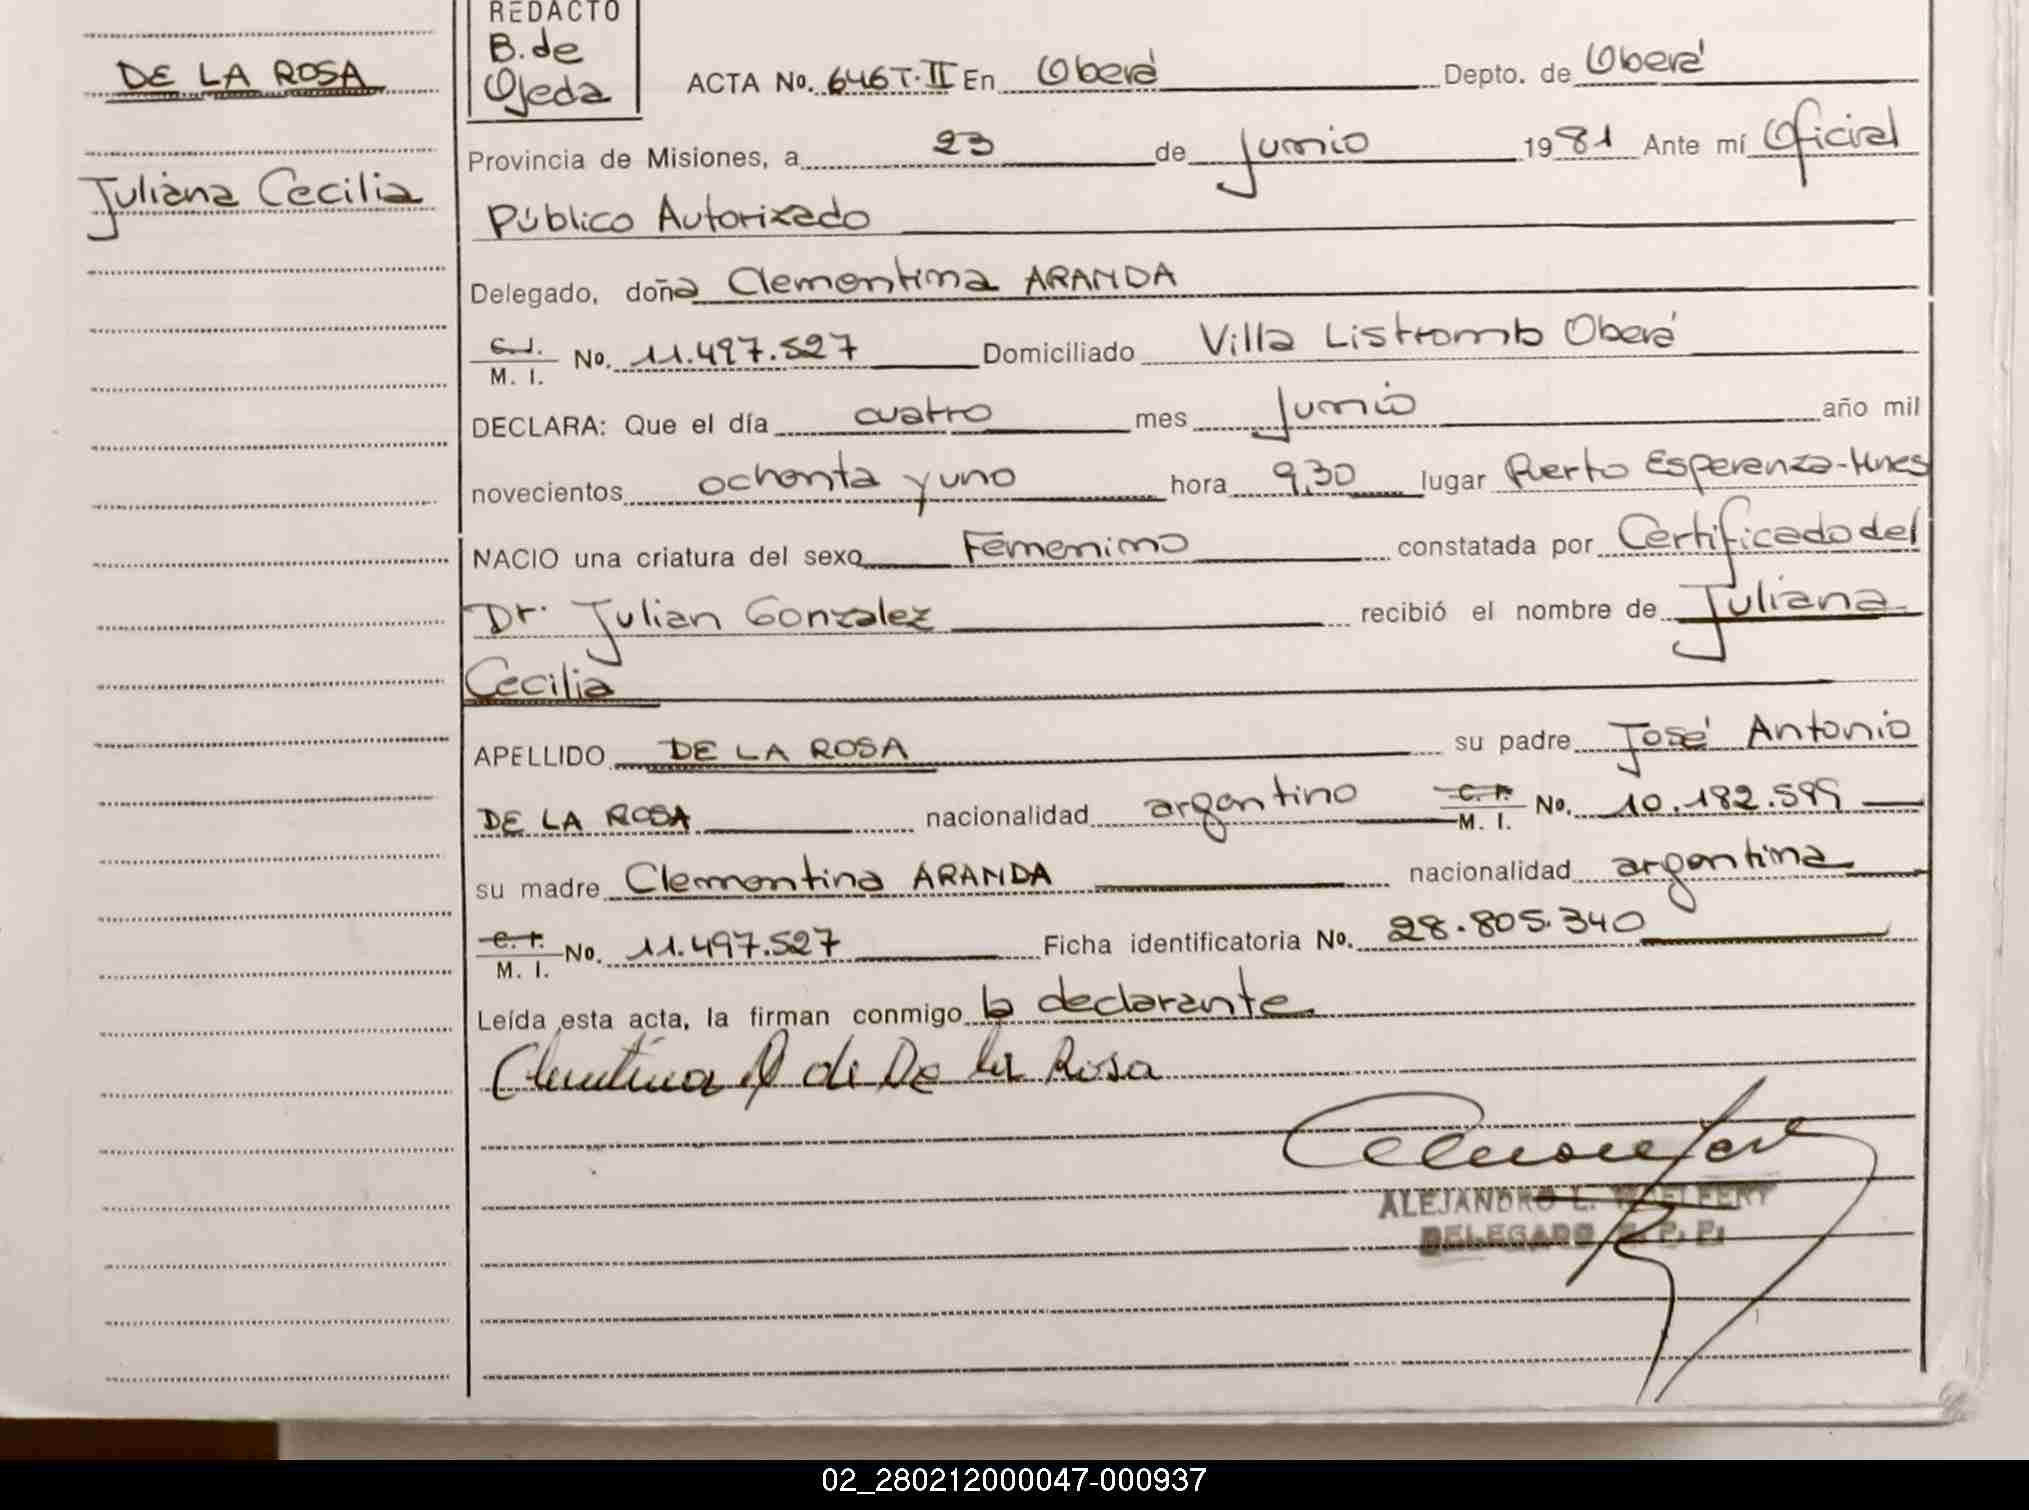 DE LA ROSA
Juliana Cecilia
REDACTO
B. de
Ojeda
ACTA No. 646 T. II En Oberá Depto. de Oberá
Provincia de Misiones, a 23 de Junio 1981 Ante mí Oficial
Público Autorizado
Delegado, doña Clementina ARANDA
C.I. M. I. No. 11.497.527 Domiciliado Villa Listromb Oberá
DECLARA: Que el día cuatro mes Junio año mil
novecientos ochenta y uno hora 9,30 lugar Puerto Esperanza-Mnes
NACIO una criatura del sexo Femenino constatada por Certificado del
Dr. Julian Gonzalez recibió el nombre de Juliana
Cecilia
APELLIDO DE LA ROSA su padre José Antonio
DE LA ROSA nacionalidad argentino C. I. M. I. No. 10.182.599
su madre Clementina ARANDA nacionalidad argentina
C. I. M. I. No. 11.497.527 Ficha identificatoria No. 28.805.340
Leída esta acta, la firman conmigo la declarante
Clementina A de De la Rosa
ALEJANDRO L.
DELEGADO
02_280212000047-000937